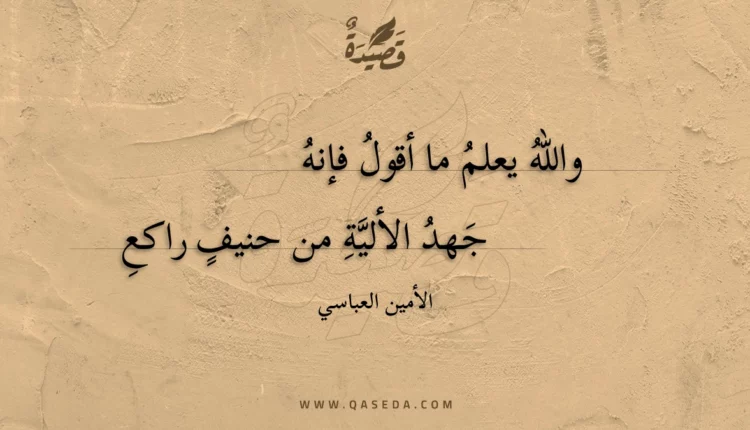 قَصِيْدَةٌ
واللهُ يعلمُ ما أقولُ فإنهُ
جَهدُ الأليَّةِ من حنيفٍ راكعِ
الأمين العباسي
WWW.QASEDA.COM